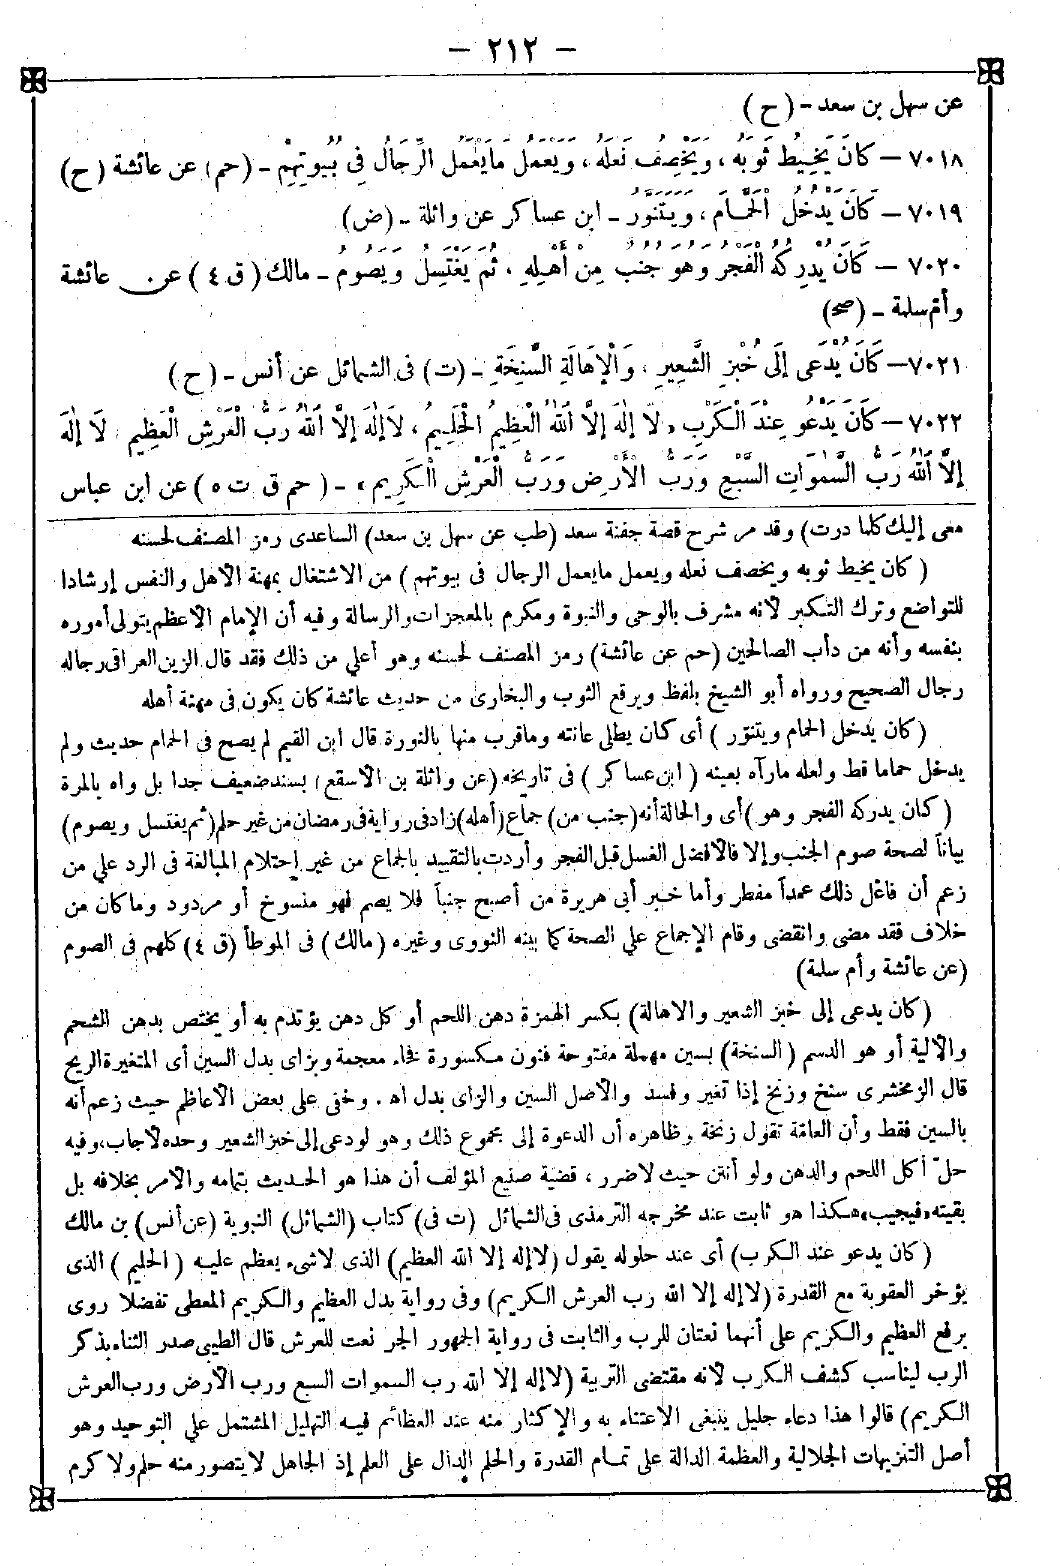 — ٢١٢ —
عن سهل بن سعد - (ح)
٧٠١٨ — كَانَ يَخِيطُ ثَوْبَهُ ، وَيَخْصِفُ نَعْلَهُ ، وَيَعْمَلُ مَا يَعْمَلُ الرِّجَالُ فِي بُيُوتِهِمْ - (حم) عن عائشة (ح)
٧٠١٩ — كَانَ يَدْخُلُ الْحَمَّامَ ، وَيَتَنَوَّرُ - ابن عساكر عن واثلة - (ض)
٧٠٢٠ — كَانَ يُدْرِكُهُ الْفَجْرُ وَهُوَ جُنُبٌ مِنْ أَهْلِهِ ، ثُمَّ يَغْتَسِلُ وَيَصُومُ - مالك (ق ٤) عن عائشة
وأم سلمة - (صح)
٧٠٢١ — كَانَ يُدْعَى إِلَى خُبْزِ الشَّعِيرِ ، وَالْإِهَالَةِ السَّنِخَةِ - (ت) فى الشمائل عن أنس - (ح)
٧٠٢٢ — كَانَ يَدْعُو عِنْدَ الْكَرْبِ « لَا إِلٰهَ إِلَّا اللّٰهُ الْعَظِيمُ الْحَلِيمُ ، لَا إِلٰهَ إِلَّا اللّٰهُ رَبُّ الْعَرْشِ الْعَظِيمِ ، لَا إِلٰهَ
إِلَّا اللّٰهُ رَبُّ السَّمٰوَاتِ السَّبْعِ وَرَبُّ الْأَرْضِ وَرَبُّ الْعَرْشِ الْكَرِيمِ » - (حم ق ت ه) عن ابن عباس
معى إليك كلما درت) وقد مر شرح قصة جفنة سعد (طب عن سهل بن سعد) الساعدى رمز المصنف لحسنه
(كان يخيط ثوبه ويخصف نعله ويعمل ما يعمل الرجال فى بيوتهم) من الاشتغال بمهنة الأهل والنفس إرشادا
للتواضع وترك التكبر لأنه مشرف بالوحى والنبوة ومكرم بالمعجزات والرسالة وفيه أن الإمام الأعظم يتولى أموره
بنفسه وأنه من دأب الصالحين (حم عن عائشة) رمز المصنف لحسنه وهو أعلى من ذلك فقد قال الزين العراقى رجاله
رجال الصحيح ورواه أبو الشيخ بلفظ ويرقع الثوب والبخارى من حديث عائشة كان يكون فى مهنة أهله
(كان يدخل الحمام ويتنوّر) أى كان يطلى عانته وما قرب منها بالنورة قال ابن القيم لم يصح فى الحمام حديث ولم
يدخل حماما قط ولعله ما رآه بعينه (ابن عساكر) فى تاريخه (عن واثلة بن الأسقع) بسند ضعيف جدا بل واه بالمرة
(كان يدركه الفجر وهو) أى والحالة أنه (جنب من) جماع (أهله) زاد فى رواية فى رمضان من غير حلم (ثم يغتسل ويصوم)
بياناً لصحة صوم الجنب وإلا فالأفضل الغسل قبل الفجر وأردت بالتقييد بالجماع من غير إحتلام المبالغة فى الرد على من
زعم أن فاعل ذلك عمداً مفطر وأما خبر أبى هريرة من أصبح جنباً فلا يصم فهو منسوخ أو مردود وما كان من
خلاف فقد مضى وانقضى وقام الإجماع على الصحة كما بينه النووى وغيره (مالك) فى الموطأ (ق ٤) كلهم فى الصوم
(عن عائشة وأم سلمة)
(كان يدعى إلى خبز الشعير والاهالة) بكسر الهمزة دهن اللحم أو كل دهن يؤتدم به أو يختص بدهن الشحم
والألية أو هو الدسم (السنخة) بسين مهملة مفتوحة فنون مكسورة فخاء معجمة وبزاى بدل السين أى المتغيرة الريح
قال الزمخشرى سنخ وزنخ إذا تغير وفسد والأصل السين والزاى بدل اه . وخفى على بعض الأعاظم حيث زعم أنه
بالسين فقط وأن العامّة تقول زنخة وظاهره أن الدعوة إلى مجموع ذلك وهو لو دعى إلى خبز الشعير وحده لأجاب، وفيه
حلّ أكل اللحم والدهن ولو أنتن حيث لا ضرر ، قضية صنيع المؤلف أن هذا هو الحديث بتمامه والأمر بخلافه بل
بقيته « فيجيب » هكذا هو ثابت عند مخرجه الترمذى فى الشمائل (ت فى) كتاب (الشمائل) النبوية (عن أنس) بن مالك
(كان يدعو عند الكرب) أى عند حلوله يقول (لا إله إلا الله العظيم) الذى لا شىء يعظم عليه (الحليم) الذى
يؤخر العقوبة مع القدرة (لا إله إلا الله رب العرش الكريم) وفى رواية بدل العظيم والكريم المعطى تفضلا روى
برفع العظيم والكريم على أنهما نعتان للرب والثابت فى رواية الجمهور الجر نعت للعرش قال الطيبى صدر الثناء بذكر
الرب ليناسب كشف الكرب لأنه مقتضى التربية (لا إله إلا الله رب السموات السبع ورب الأرض ورب العرش
الكريم) قالوا هذا دعاء جليل ينبغى الاعتناء به والإكثار منه عند العظائم فيه التهليل المشتمل على التوحيد وهو
أصل التنزيهات الجلالية والعظمة الدالة على تمام القدرة والحلم الدال على العلم إذ الجاهل لا يتصور منه حلم ولا كرم